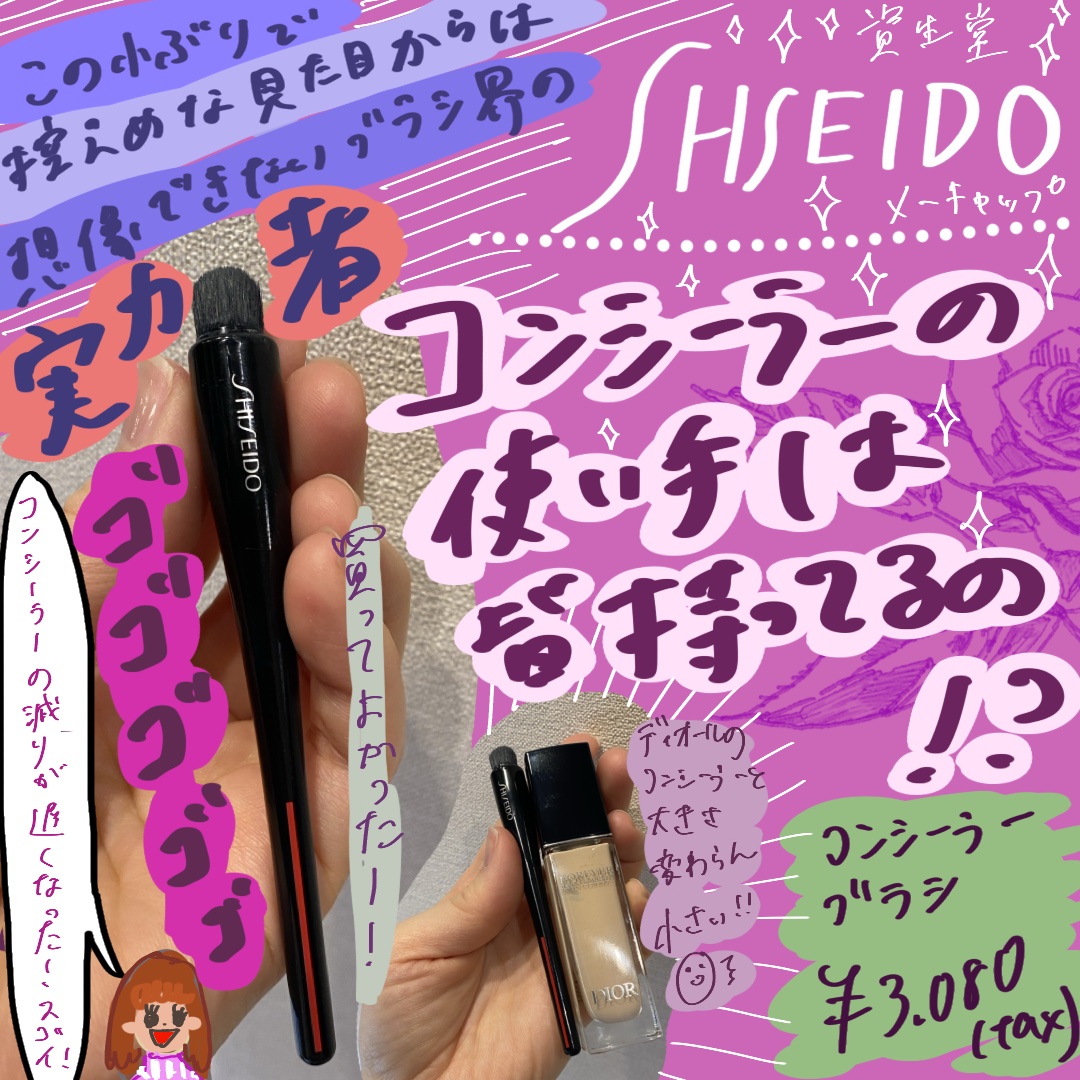 この小ぶりで
控えめな見た目からは
想像できないブラシ界の
実力者
資生堂
SHISEIDO
メーキャップ
コンシーラーの
使い手は
皆持ってるの
!?
SHISEIDO
ゴゴゴゴゴ
買ってよかったー!
コンシーラーの減りが遅くなったースゴイ!
ディオールの
コンシーラーと
大きさ
変わらん
小さい!!
SHISEIDO
FOREVER
DIOR
コンシーラー
ブラシ
¥3.080
(tax)